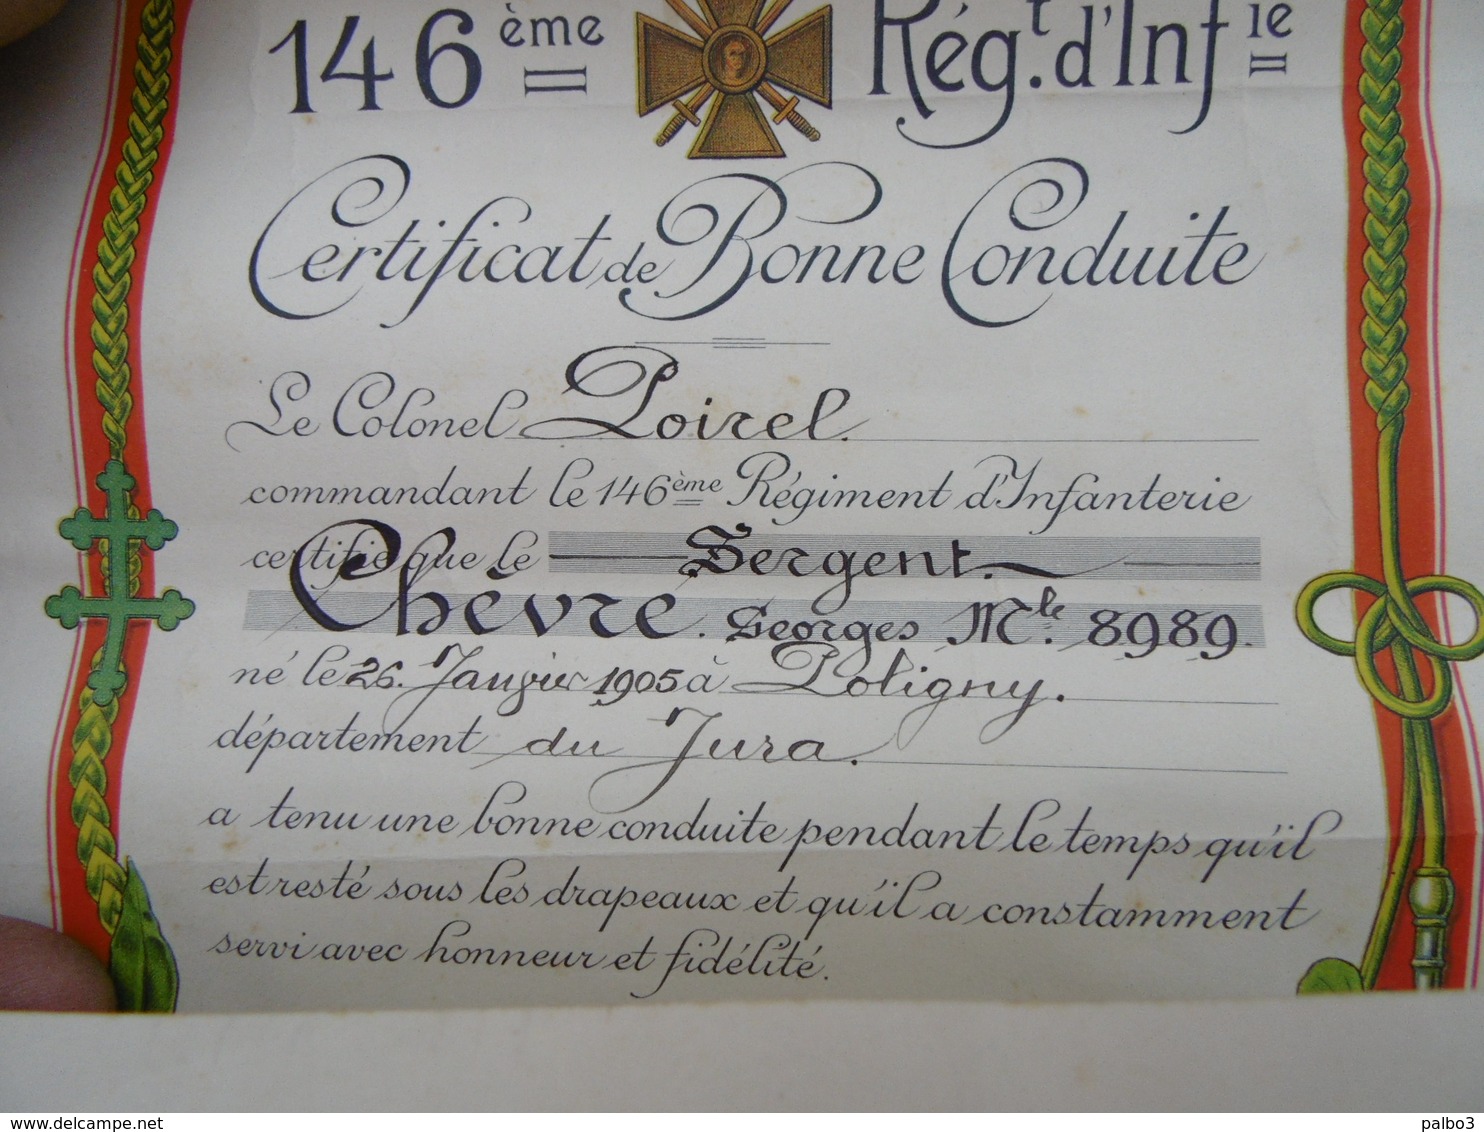 146ème Régt. d'Infie
Certificat de Bonne Conduite
Le Colonel Poirel.
commandant le 146ème Régiment d'Infanterie
certifie que le Sergent.
Chèvre. Georges Mle. 8989.
né le 26. Janvier 1905 à Poligny.
département du Jura.
a tenu une bonne conduite pendant le temps qu'il
est resté sous les drapeaux et qu'il a constamment
servi avec honneur et fidélité.
www.delcampe.net
palbo3